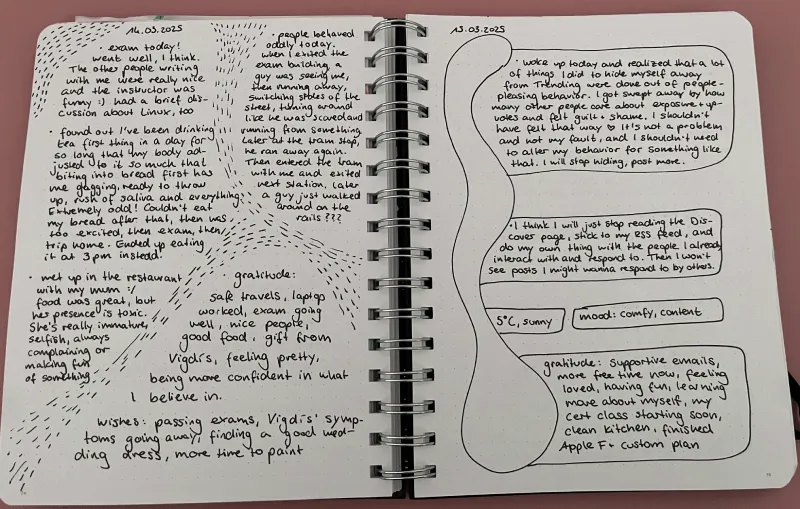 14.03.2025
• exam today!
went well, I think.
The other people writing
with me were really nice
and the instructor was
funny :) had a brief dis-
cussion about Linux, too
• found out I've been drinking
tea first thing in a day for
so long that my body ad-
justed to it so much that
biting into bread first has
me gagging, ready to throw
up, rush of saliva and everything.
Extremely odd! Couldn't eat
my bread after that, then was
too excited, then exam, then
trip home. Ended up eating
it at 3pm instead.
• met up in the restaurant
with my mum :/
food was great, but
her presence is toxic.
She's really immature,
selfish, always
complaining or
making fun
of something.
• people behaved
oddly today.
When I exited the
exam building, a
guy was seeing me,
then running away,
switching sides of the
street, turning around
like he was scared and
running from something.
Later at the tram stop,
he ran away again.
Then entered the tram
with me and exited
next station. Later
a guy just walked
around on the
rails ???
gratitude:
safe travels, laptop
worked, exam going
well, nice people,
good food, gift from
Vigdis, feeling pretty,
being more confident in what
I believe in.
wishes: passing exams, Vigdis' symp-
toms going away, finding a good wed-
ding dress, more time to paint
13.03.2025
• woke up today and realized that a lot
of things I did to hide myself away
from Trending were done out of people-
pleasing behavior. I got swept away by how
many other people care about exposure + up-
votes and felt guilt + shame. I shouldn't
have felt that way ♡ It's not a problem
and not my fault, and I shouldn't need
to alter my behavior for something like
that. I will stop hiding, post more.
• I think I will just stop reading the Dis-
cover page, stick to my RSS feed, and
do my own thing with the people I already
interact with and respond to. Then I won't
see posts I might wanna respond to by others.
5°C, sunny
mood: comfy, content
gratitude: supportive emails,
more free time now, feeling
loved, having fun, learning
more about myself, my
cert class starting soon,
clean kitchen, finished
Apple F+ custom plan